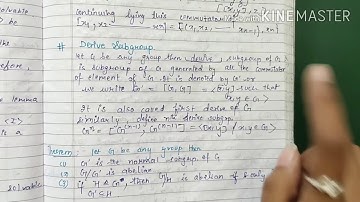 Made with
KINEMASTER
continuing lying this commutator
[x1, x2, --- xn] = [(x1, x2, ---- xn-1), xn]
# Derive Subgroup
Let G be any group then, derive subgroup of G
is subgroup of G generated by all the commutator
of element of G. It is denoted by G' or
we write G' = [G, G] = <[x,y]> such that
x,y ∈ G>
It is also called first derive of G
Similarly, define nth derive subgroup
G^n = [G^(n-1), G^(n-1)] = <[x,y] / x,y ∈ G>
Theorem: let G be any group then
(1) G' is the normal subgroup of G
(2) G/G' is abelian
(3) If H ⊲ G, then G/H is abelian if & only
if G' ⊆ H
be
lemma
<z>
is a
solvable